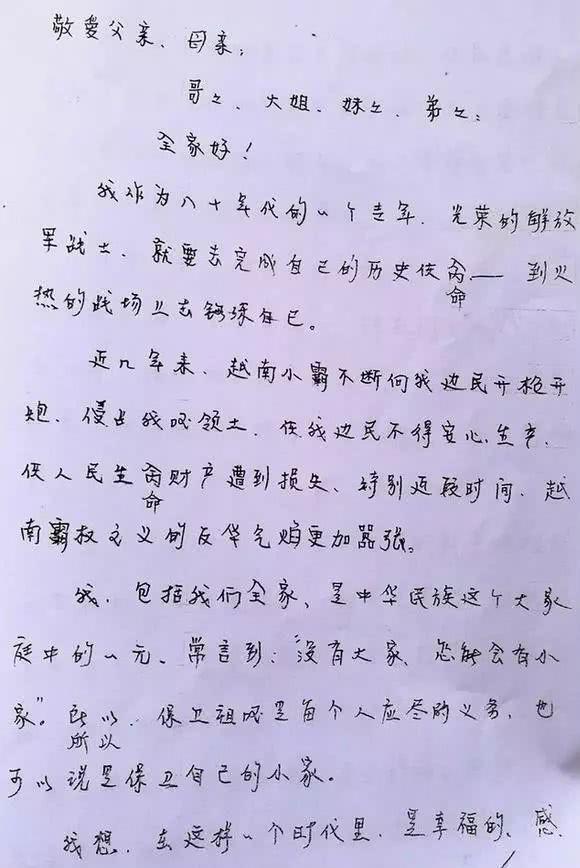 敬爱父亲、母亲：
哥々、大姐、妹々、弟々：
全家好！
我作为八十年代的一个青年、光荣的解放
军战士、就要去完成自己的历史使命——到火
热的战场上去锻练自己。
近几年来、越南小霸不断向我边民开枪开
炮、侵占我国领土、使我边民不得安心生产、
使人民生命财产遭到损失、特别近段时间、越
南霸权主义的反华气焰更加嚣张。
我、包括我们全家、是中华民族这个大家
庭中的一元。常言到：“没有大家、怎能会有小
家”。所以、保卫祖国是每个人应尽的义务、也
所以
可以说是保卫自己的小家。
我想、在这样一个时代里、是幸福的、感